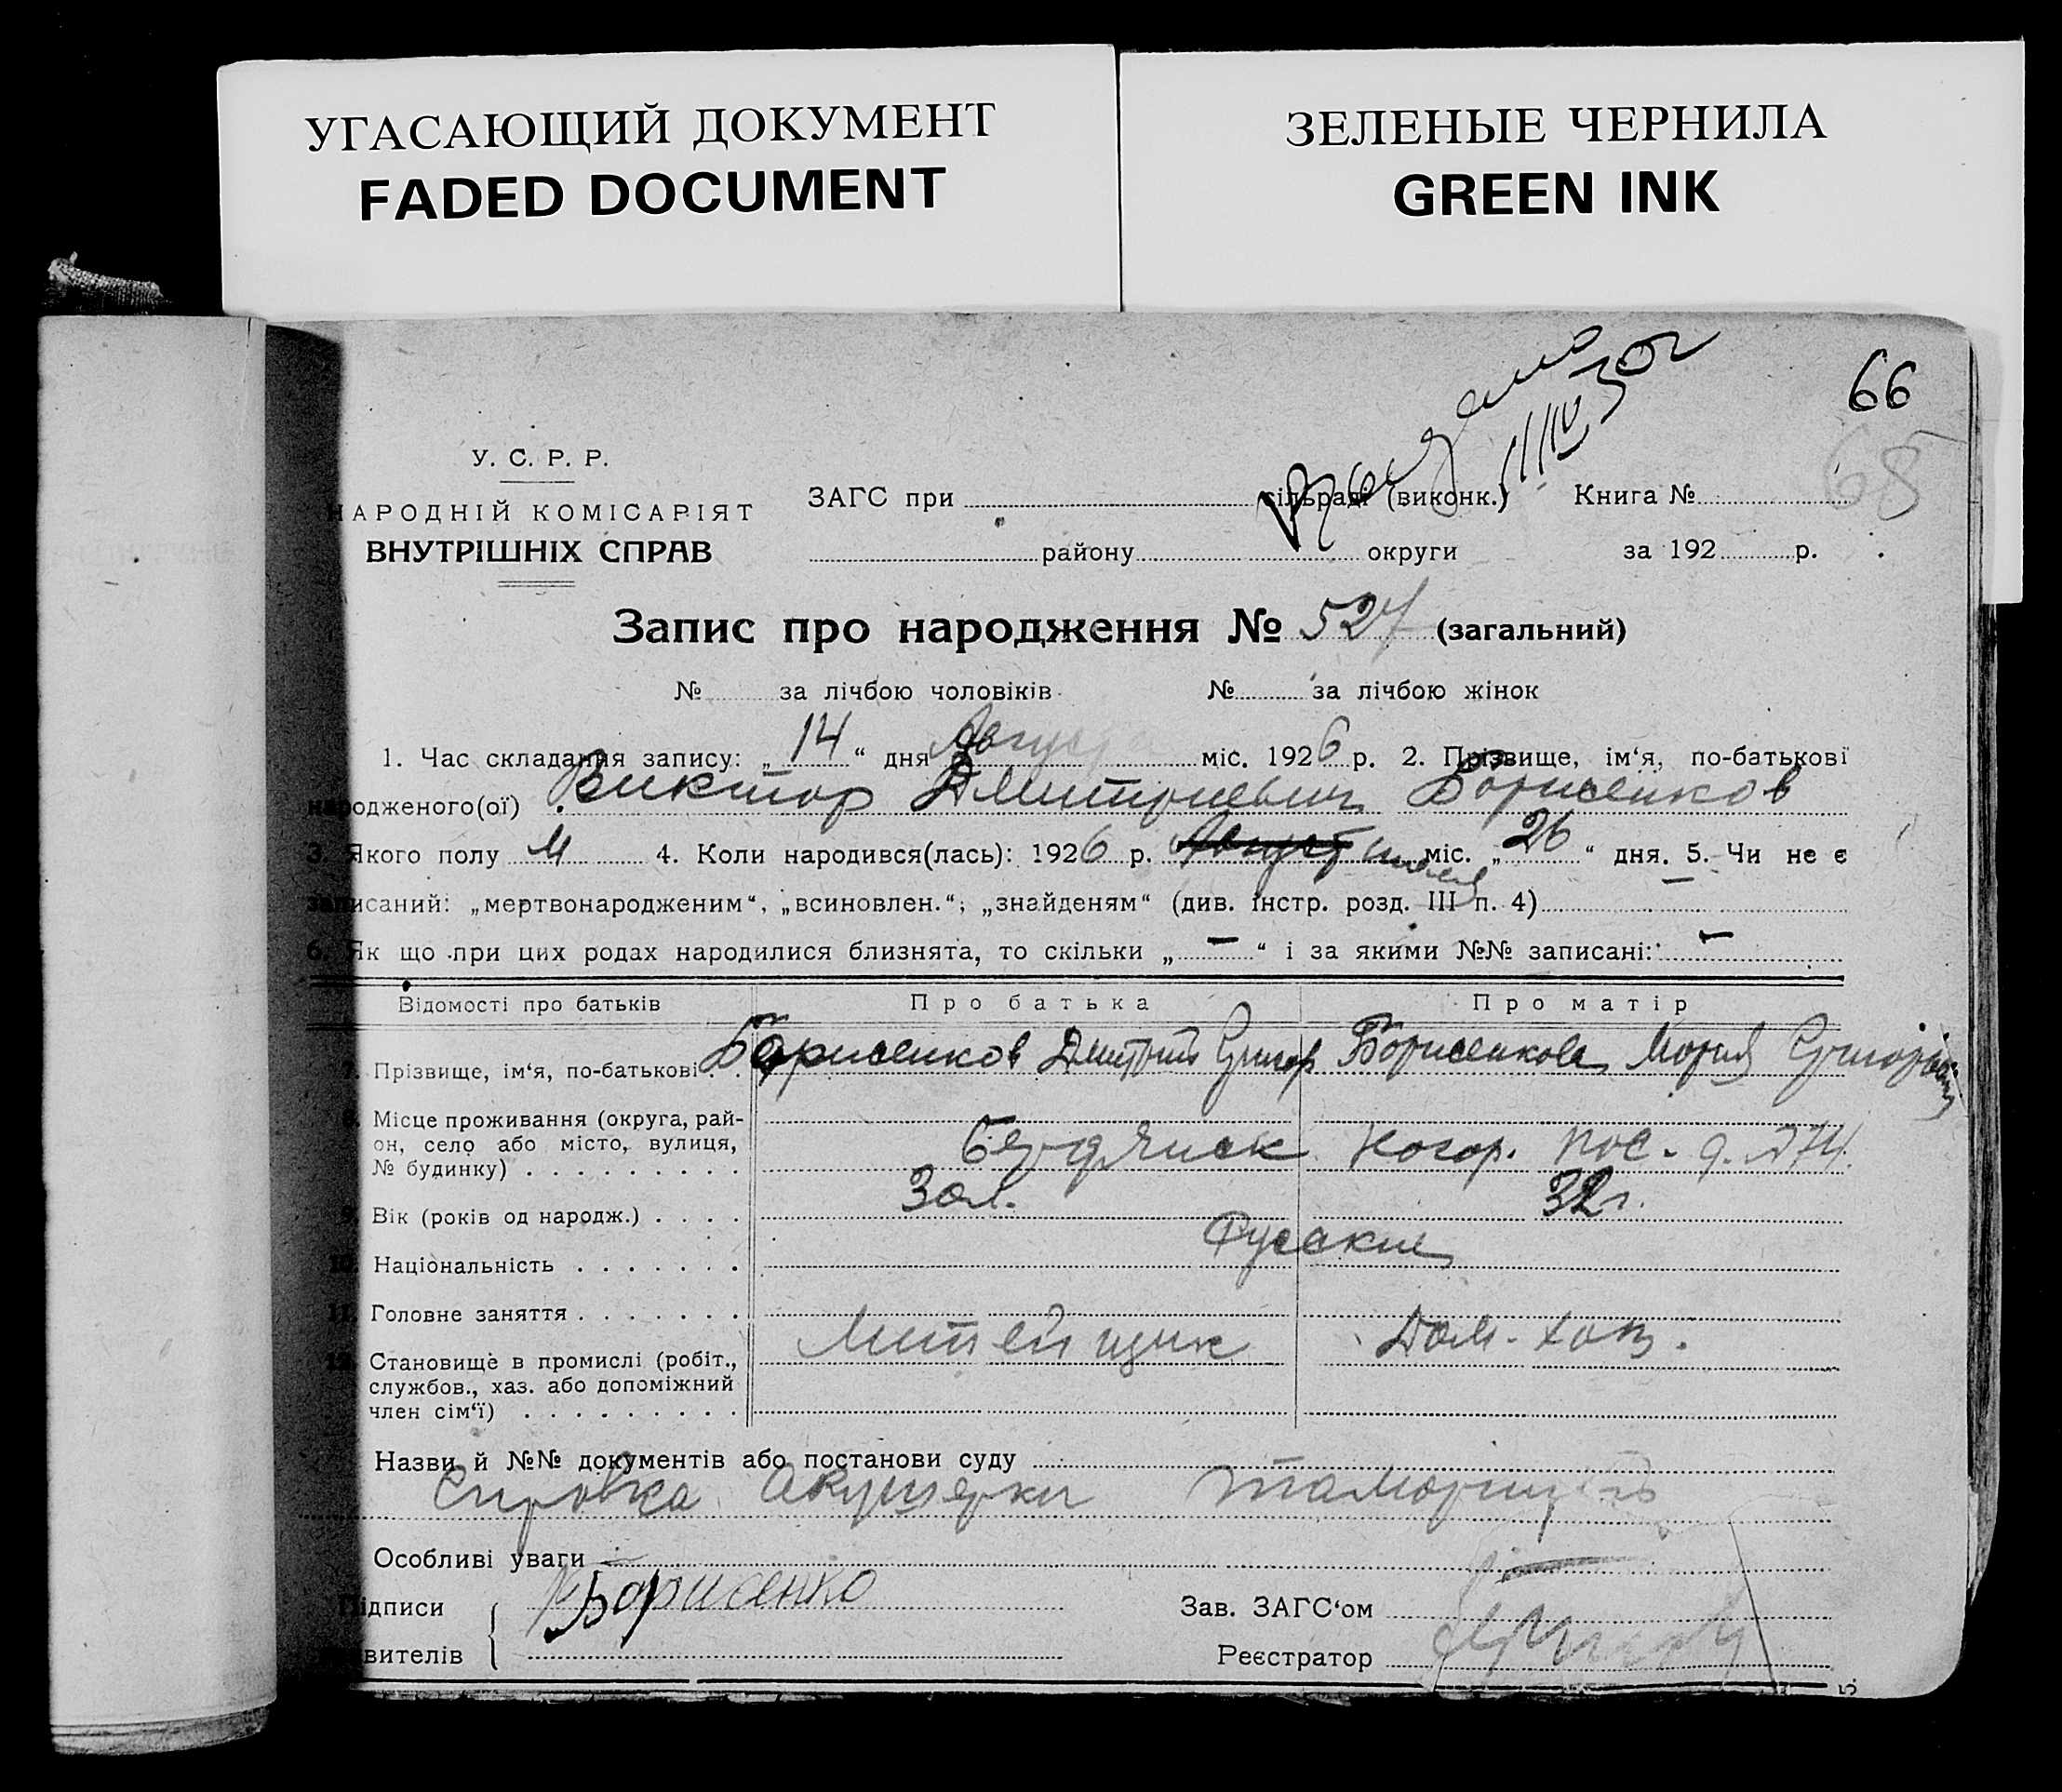 УГАСАЮЩИЙ ДОКУМЕНТ
FADED DOCUMENT
ЗЕЛЕНЫЕ ЧЕРНИЛА
GREEN INK
66
68
У. С. Р. Р.
НАРОДНІЙ КОМІСАРІЯТ
ВНУТРІШНІХ СПРАВ
ЗАГС при сільраді (виконк.) Книга №
району округи за 192 р.
Запис про народження № 527 (загальний)
№ за лічбою чоловіків № за лічбою жінок
1. Час складання запису: „ 14 “ дня Августа міс. 1926 р. 2. Прізвище, ім‘я, по-батькові
народженого(ої) Виктор Дмитриевич Борисенков
3. Якого полу М 4. Коли народився(лась): 1926 р. Август июля міс. „ 26 “ дня. 5. Чи не є
записаний: „мертвонародженим“, „всиновлен.“, „знайденям“ (див. інстр. розд. III п. 4) —
6. Як що при цих родах народилися близнята, то скільки „ — “ і за якими №№ записані: —
Відомості про батьків Про батька Про матір
7. Прізвище, ім‘я, по-батькові Борисенков Дмитрий Григор Борисенкова Мария Григорьевн
8. Місце проживання (округа, рай-
он, село або місто, вулиця,
№ будинку) Бердянск Ногор. пос. д. 274.
9. Вік (років од народж.) 30 л. 32 г.
10. Національність Русские
11. Головне заняття
Литейщик Дом. хоз.
12. Становище в промислі (робіт.,
службов., хаз. або допоміжний
член сім‘ї)
Назви й №№ документів або постанови суду
Справка акушерки
Особливі уваги —
Підписи Борисенко Зав. ЗАГС‘ом
вителів Реєстратор